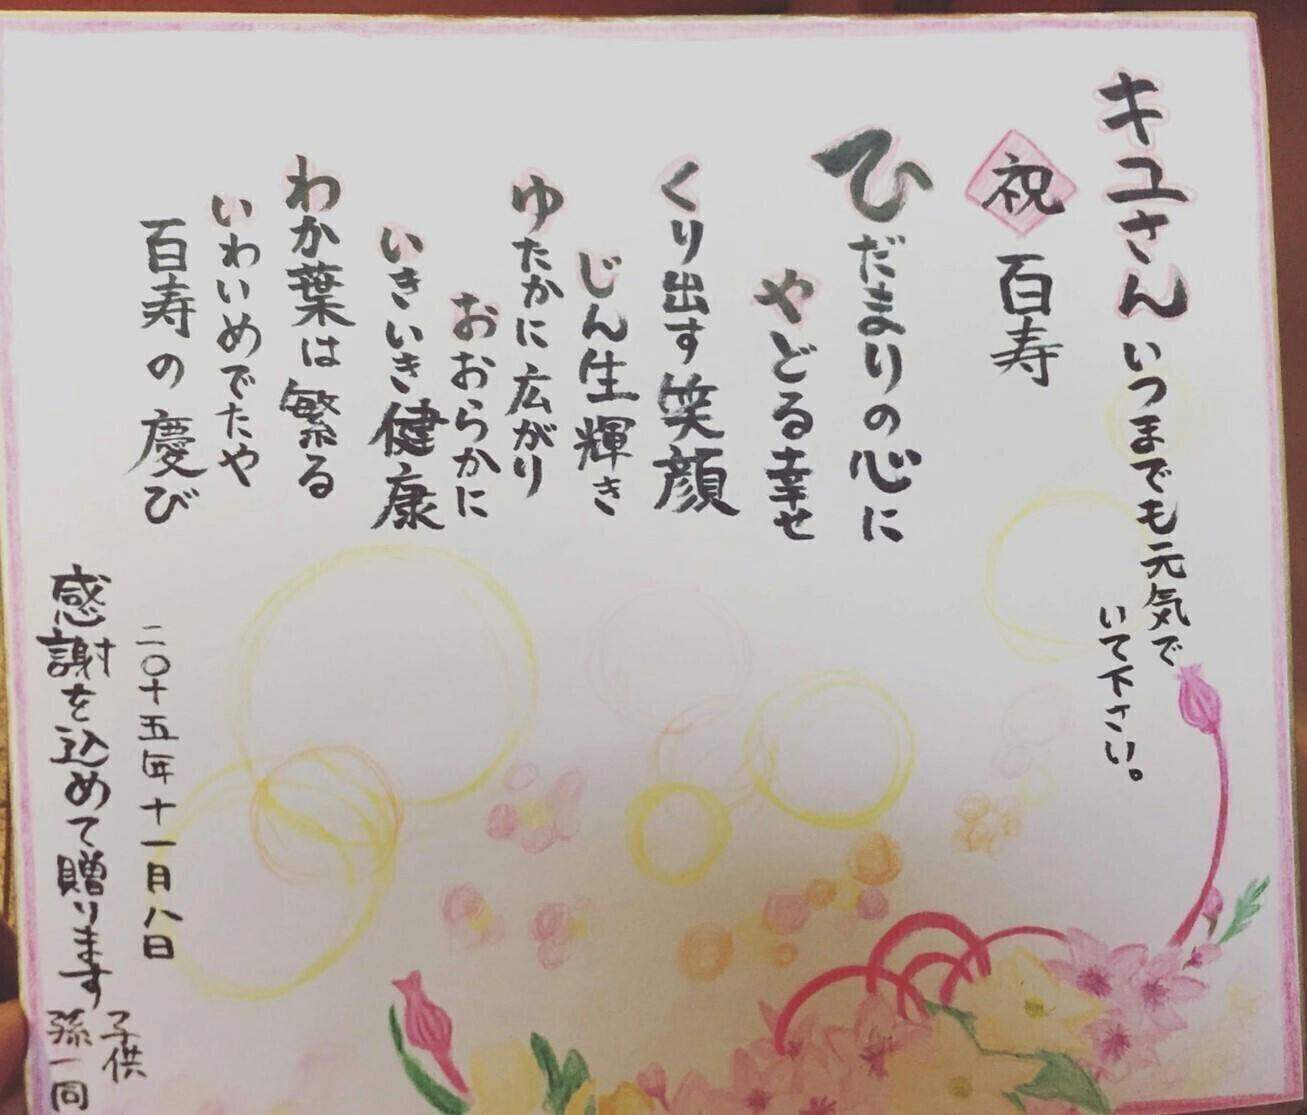 キユさんいつまでも元気で
いて下さい。
祝 百寿
ひだまりの心に
やどる幸せ
くり出す笑顔
じん生輝き
ゆたかに広がり
おおらかに
いきいき健康
わか葉は繁る
いわいめでたや
百寿の慶び
二〇十五年十一月八日
感謝を込めて贈ります
子供
孫一同